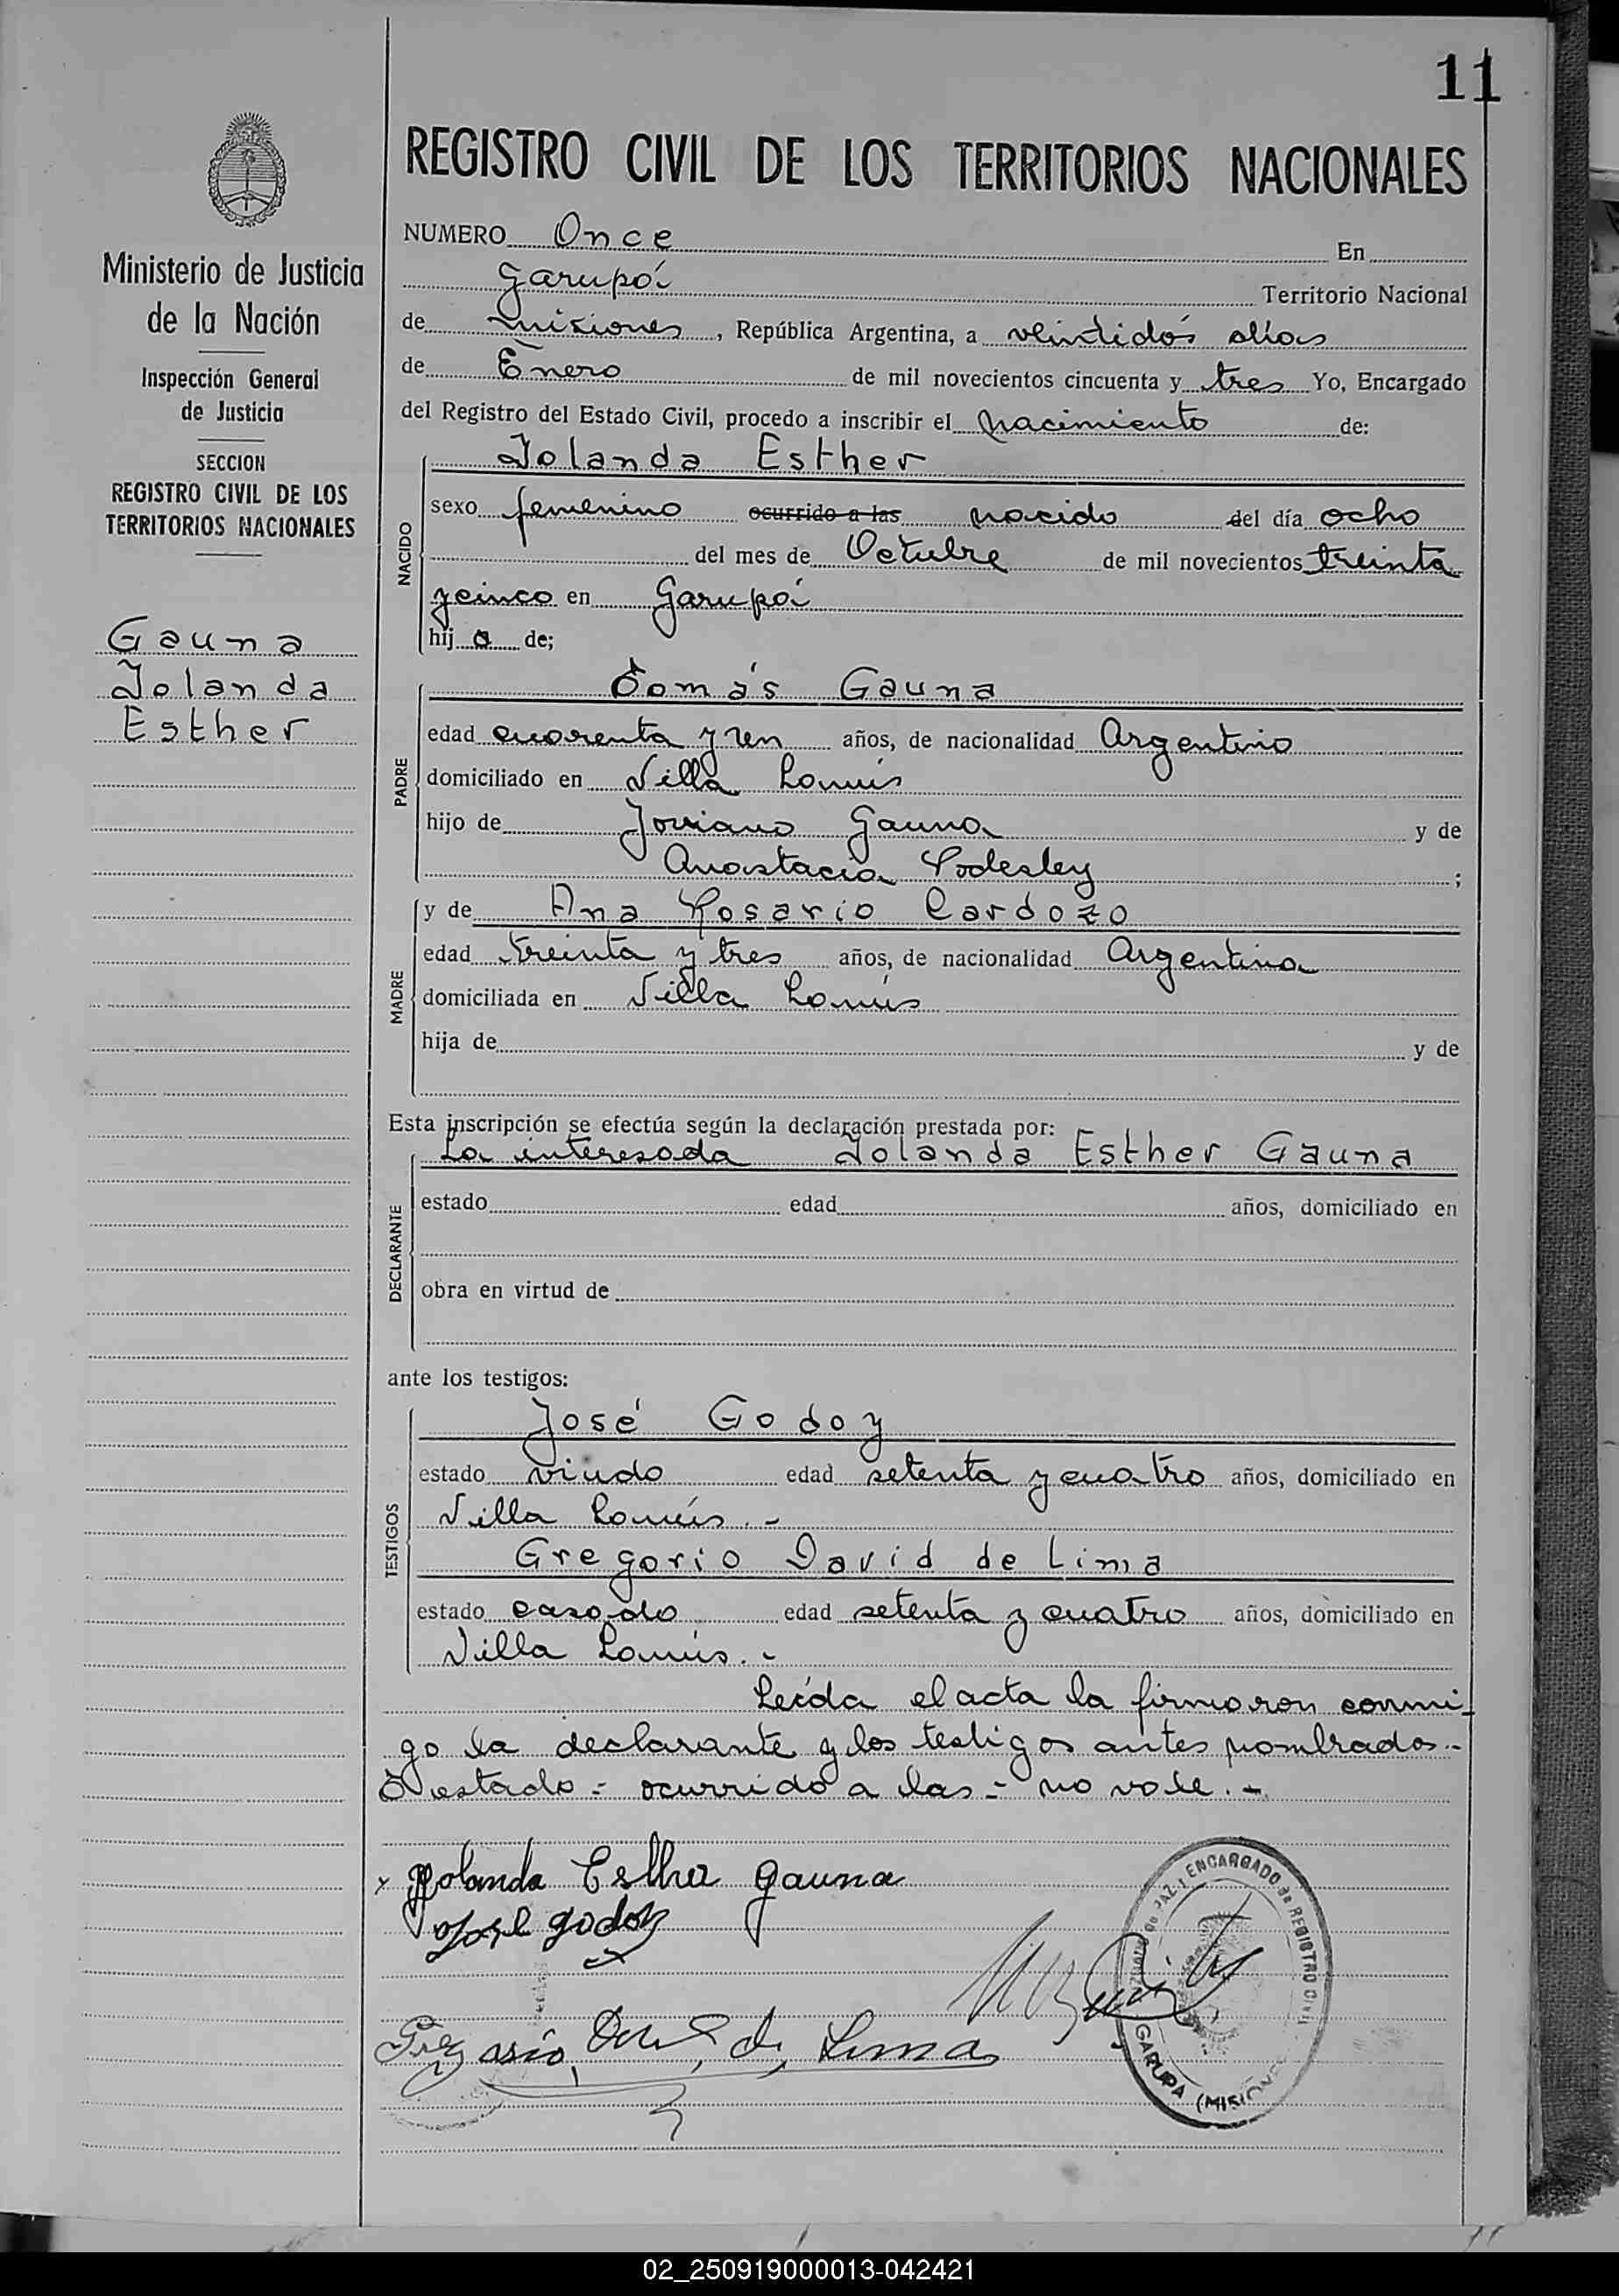 11
REGISTRO CIVIL DE LOS TERRITORIOS NACIONALES
Ministerio de Justicia
de la Nación
Inspección General
de Justicia
SECCION
REGISTRO CIVIL DE LOS
TERRITORIOS NACIONALES
Gauna
Jolanda
Esther
NUMERO Once En
Garupá Territorio Nacional
de Misiones, República Argentina, a veintidós días
de Enero de mil novecientos cincuenta y tres Yo, Encargado
del Registro del Estado Civil, procedo a inscribir el nacimiento de:
NACIDO
Jolanda Esther
sexo femenino ocurrido a las nacido del día ocho
del mes de Octubre de mil novecientos treinta
y cinco en Garupá
hij a de;
PADRE
Tomás Gauna
edad cuarenta y un años, de nacionalidad Argentino
domiciliado en Villa Lanús
hijo de Gauna y de
Anastacia ;
MADRE
y de Ana Rosario Cardozo
edad treinta y tres años, de nacionalidad Argentina
domiciliada en Villa Lanús
hija de y de
Esta inscripción se efectúa según la declaración prestada por:
DECLARANTE
La interesada Jolanda Esther Gauna
estado edad años, domiciliado en
obra en virtud de
ante los testigos:
TESTIGOS
José Godoy
estado viudo edad setenta y cuatro años, domiciliado en
Villa Lanús.-
Gregorio David de Lima
estado casado edad setenta y cuatro años, domiciliado en
Villa Lanús.-
Leída el acta la firmaron conmi-
go la declarante y los testigos antes nombrados.-
testado - ocurrido a las - no vale.-
Jolanda Esther Gauna
José Godoy
Gregorio David de Lima
DE PAZ Y ENCARGADO de REGISTRO CIVIL
GARUPA (MISIONES
02_250919000013-042421